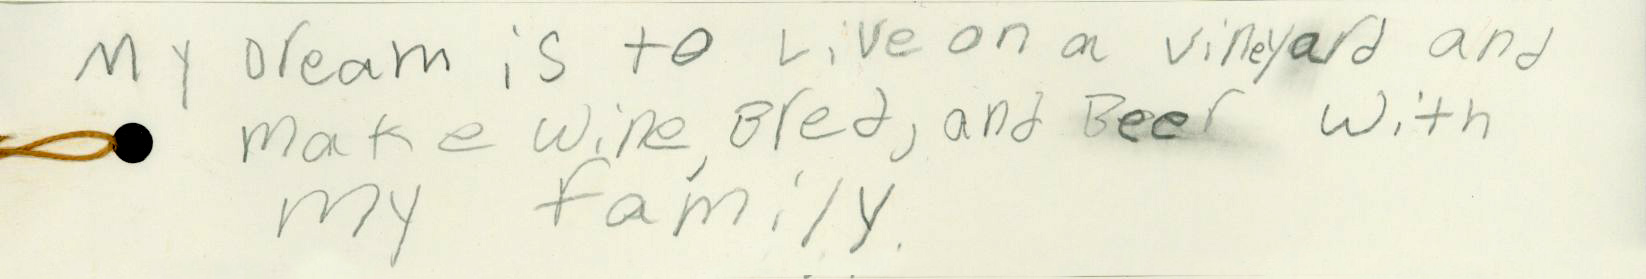 My Dream is to Live on a vineyard and
make wine, Bred, and Beer with
my family.